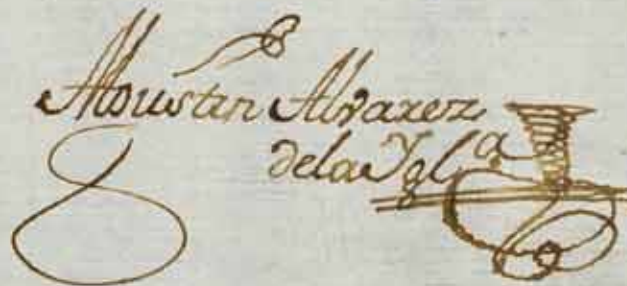 Agustin Alvarez
de la Ygl.ª